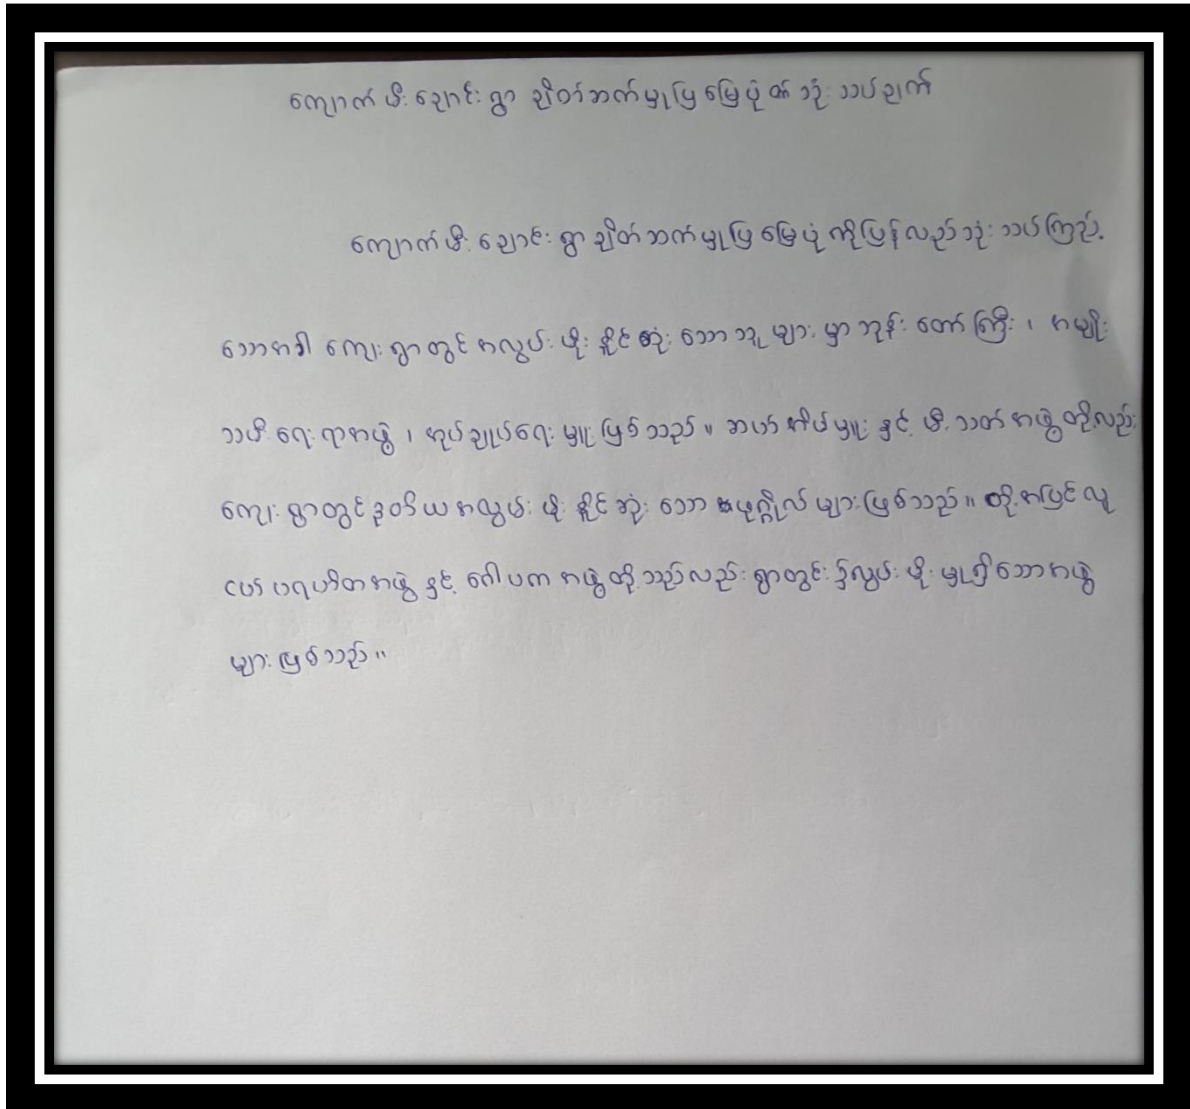 ကျောက်မီးညောင်းရွာ ချိတ်ဆက်မှုပြမြေပုံ သုံးသပ်ချက်
ကျောက်မီးညောင်းရွာ ချိတ်ဆက်မှုပြမြေပုံကိုပြန်လည်သုံးသပ်ကြည့်
သောအခါ ကျေးရွာတွင် လွှမ်းမိုးနိုင်ဆုံးသောသူများမှာ ဘုန်းတော်ကြီး၊ အမျိုး
သမီးရေးရာအဖွဲ့၊ အုပ်ချုပ်ရေးမှူးဖြစ်သည်။ ဆယ်အိမ်မှူးနှင့် မီးသတ်အဖွဲ့တို့လည်း
ကျေးရွာတွင်ဒုတိယအလွှမ်းမိုးနိုင်ဆုံးသော ပုဂ္ဂိုလ်များဖြစ်သည်။ ထို့အပြင်လူ
ငယ်ပရဟိတအဖွဲ့နှင့် ဂေါပကအဖွဲ့တို့သည်လည်း ရွာတွင်း လွှမ်းမိုးမှုရှိသောအဖွဲ့
များဖြစ်သည်။